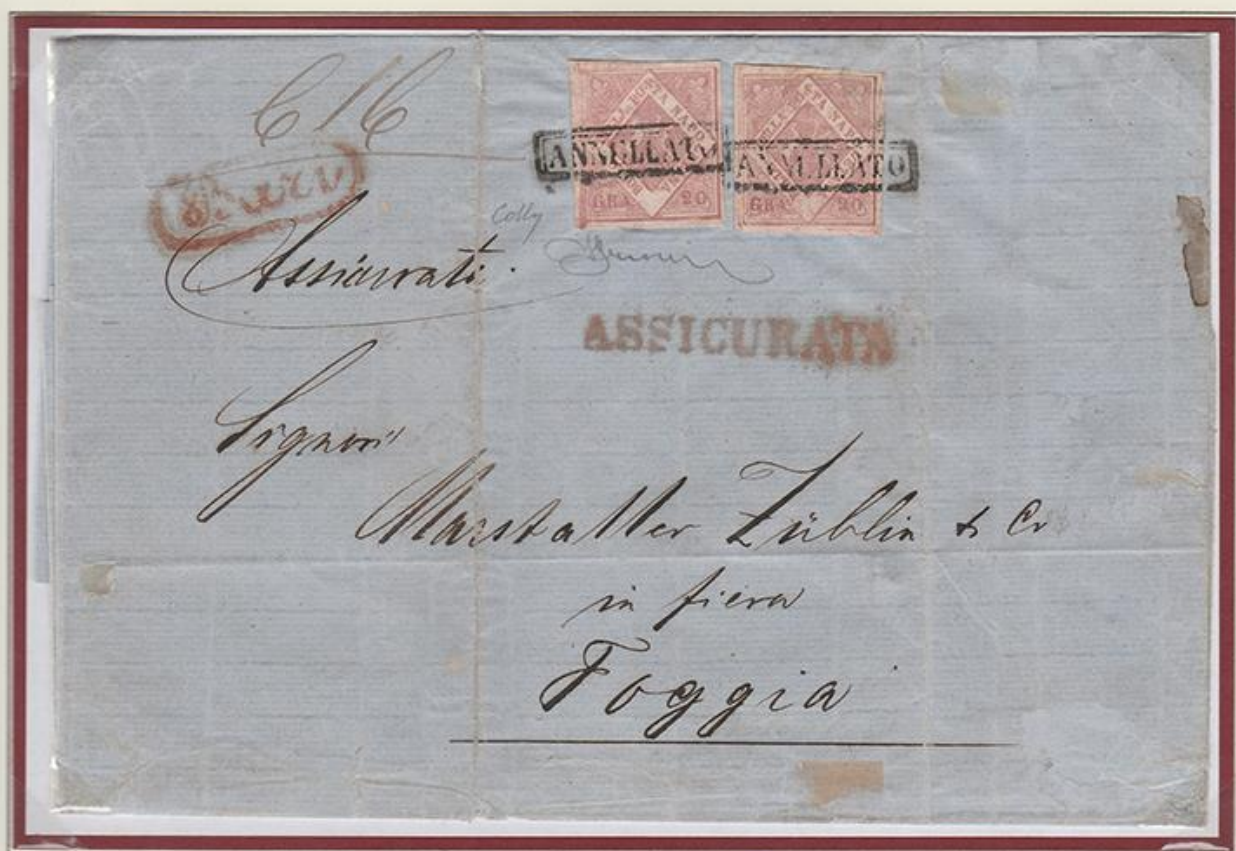 616
ANNULLATO ANNULLATO
GRA 20 GRA 20
Assicurata
ASSICURATA
Signori
Marstaller Züblin & Co
in fiera
Foggia